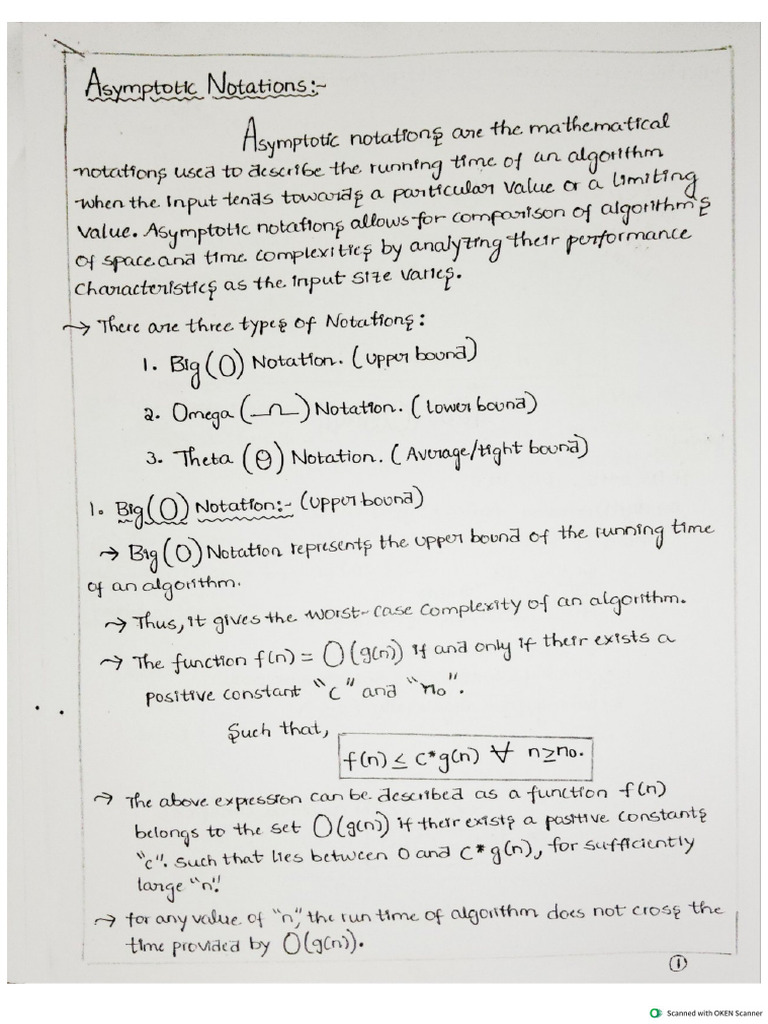 Asymptotic Notations:-
Asymptotic notations are the mathematical
notations used to describe the running time of an algorithm
when the input tends towards a particular value or a limiting
value. Asymptotic notations allows for comparison of algorithms
of space and time complexities by analyzing their performance
characteristics as the input size varies.
→ There are three types of Notations:
1. Big (O) Notation. (Upper bound)
2. Omega (Ω) Notation. (Lower bound)
3. Theta (θ) Notation. (Average/tight bound)
1. Big (O) Notation:- (Upper bound)
→ Big (O) Notation represents the upper bound of the running time
of an algorithm.
→ Thus, it gives the worst-case complexity of an algorithm.
→ The function f(n) = O(g(n)) if and only if their exists a
positive constant "c" and "n₀".
Such that,
f(n) ≤ c*g(n) ∀ n≥n₀.
→ The above expression can be described as a function f(n)
belongs to the set O(g(n)) if their exists a positive constants
"c". such that lies between 0 and c*g(n), for sufficiently
large "n".
→ for any value of "n", the run time of algorithm does not cross the
time provided by O(g(n)).
1
Scanned with OKEN Scanner